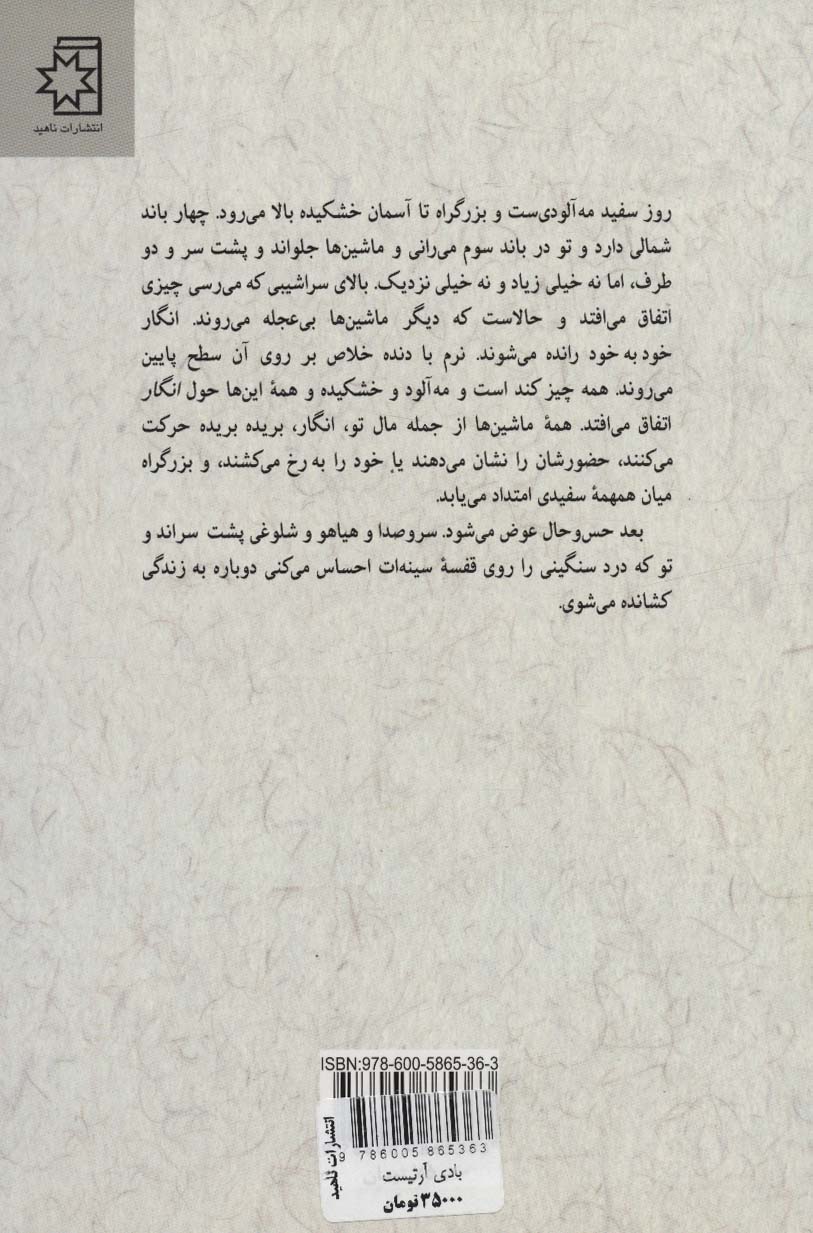 انتشارات ناهید
روز سفید مه‌آلودی‌ست و بزرگراه تا آسمان خشکیده بالا می‌رود. چهار باند
شمالی دارد و تو در باند سوم می‌رانی و ماشین‌ها جلواند و پشت سر و دو
طرف، اما نه خیلی زیاد و نه خیلی نزدیک. بالای سراشیبی که می‌رسی چیزی
اتفاق می‌افتد و حالاست که دیگر ماشین‌ها بی‌عجله می‌روند. انگار
خود به خود رانده می‌شوند. نرم با دنده خلاص بر روی آن سطح پایین
می‌روند. همه چیز کند است و مه‌آلود و خشکیده و همۀ این‌ها حول انگار
اتفاق می‌افتد. همۀ ماشین‌ها از جمله مال تو، انگار، بریده بریده حرکت
می‌کنند، حضورشان را نشان می‌دهند یا خود را به رخ می‌کشند، و بزرگراه
میان همهمۀ سفیدی امتداد می‌یابد.
بعد حس‌وحال عوض می‌شود. سروصدا و هیاهو و شلوغی پشت سراند و
تو که درد سنگینی را روی قفسۀ سینه‌ات احساس می‌کنی دوباره به زندگی
کشانده می‌شوی.
ISBN:978-600-5865-36-3
انتشارات ناهید
9 786005 865363
بادی آرتیست
۳۵۰۰۰ تومان